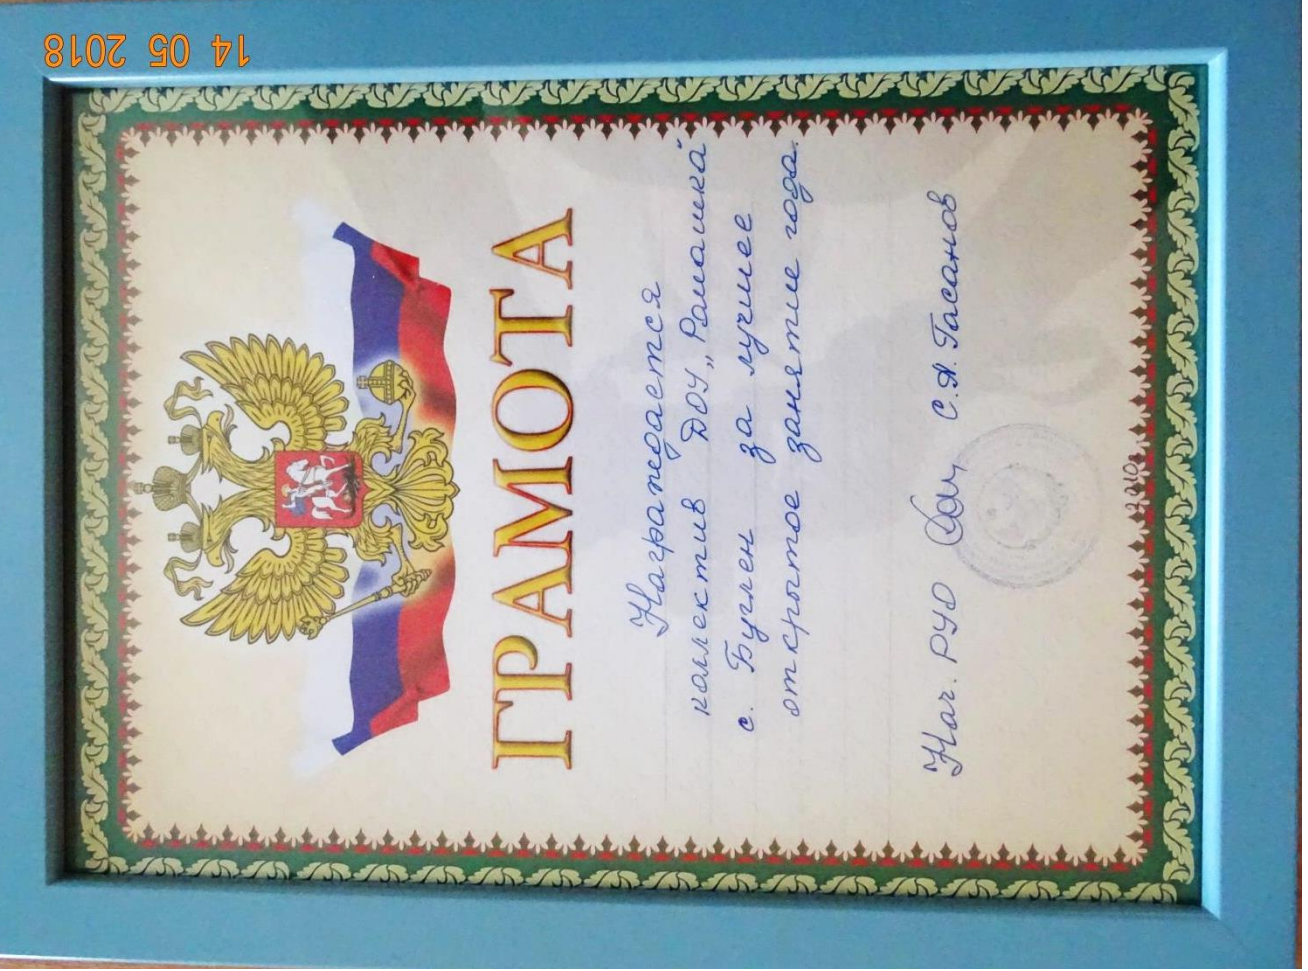 14 05 2018
ГРАМОТА
Награждается
коллектив ДОУ „Ромашка"
с. Буглен за лучшее
открытое занятие года.
Нач. РУО С.Я. Гасанов